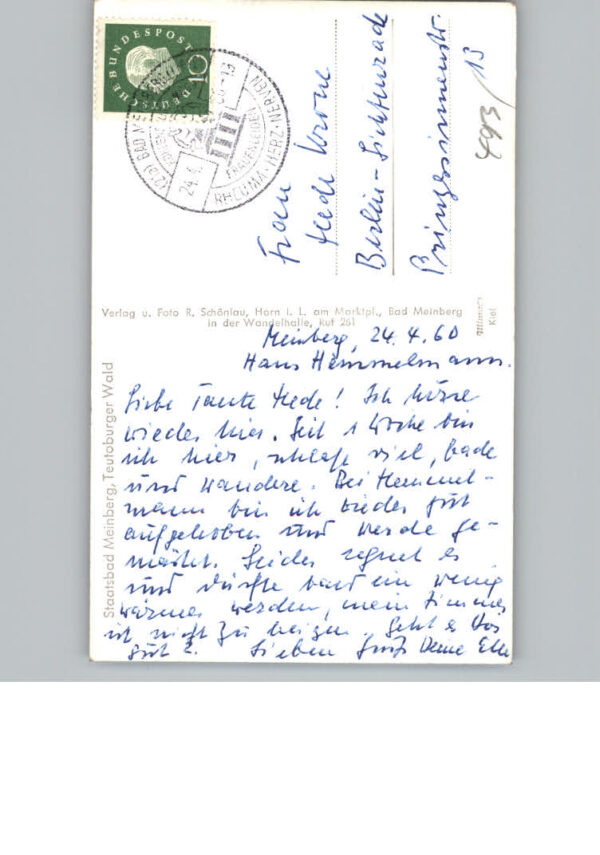 DEUTSCHE BUNDESPOST
10
(21a) BAD MEINBERG
24.4.
RHEUMA-HERZ-NERVEN
FRAUENLEIDEN
Frau
Hede Krone
Berlin-Lichtenrade
Prinzessinnenstr.
13
493/
Verlag u. Foto R. Schönlau, Horn i. L. am Marktpl., Bad Meinberg
in der Wandelhalle, Ruf 261
Kiel
Staatsbad Meinberg, Teutoburger Wald
Meinberg, 24.4.60
Haus Hemmelmann.
Liebe Tante Hede! Ich
wieder hier. Seit 1 Woche bin
ich hier, schlafe viel, bade
und wandere. Bei Hemmel-
mann bin ich wieder gut
aufgehoben und werde ge-
mästet. Leider regnet es
und dürfte bald ein wenig
wärmer werden, mein Zimmer
ist nicht zu heizen. Geht es
gut? Lieben Gruß Deine